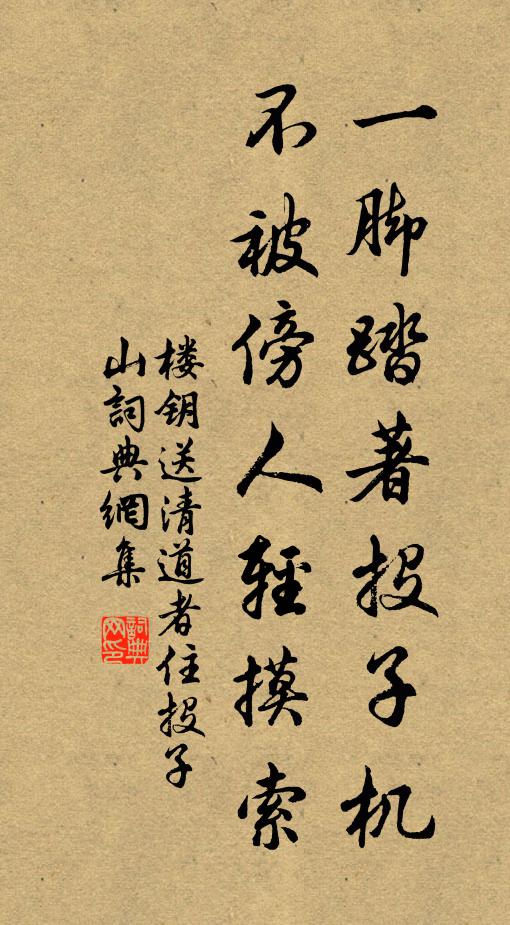 一脚踏著投子机
不被傍人輕摸索
楼钥送清道者住投子
山詞典網集
詞典網印